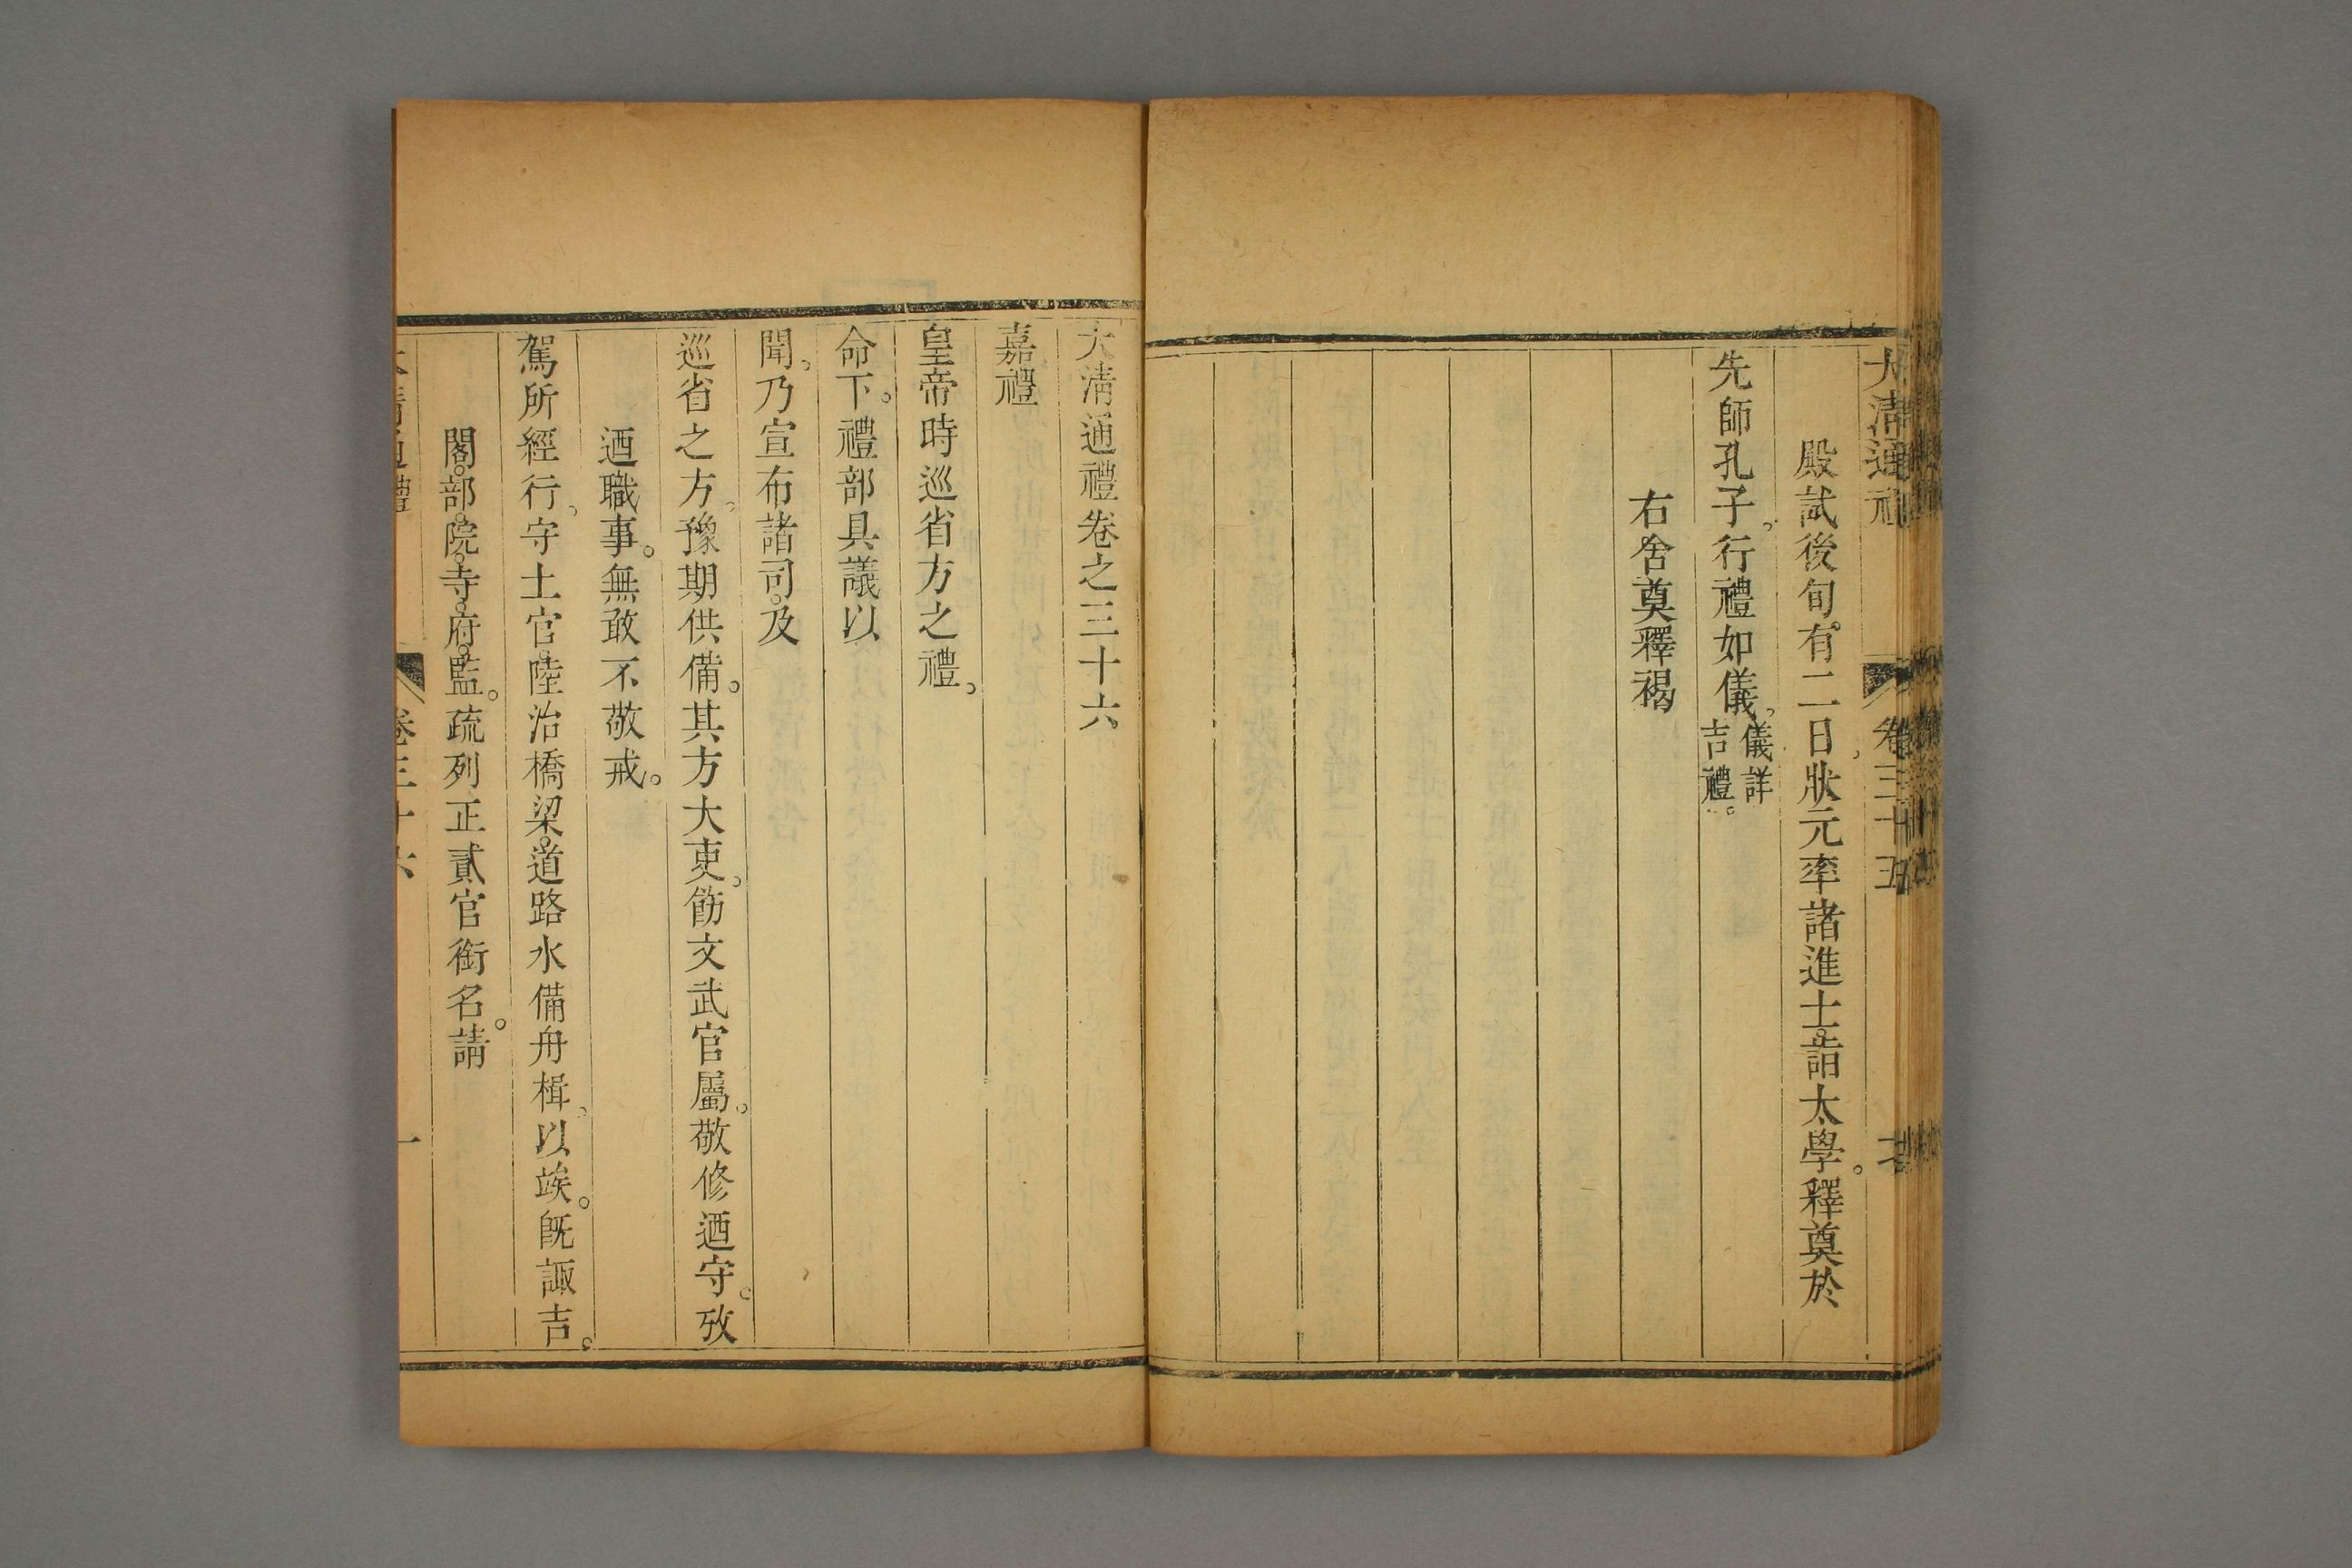 大清通禮 卷三十五
殿試後旬。有二日。狀元率諸進士。詣太學。釋奠於
先師孔子。行禮如儀。儀詳
吉禮。
右舍奠釋褐
大清通禮卷之三十六
嘉禮
皇帝時巡省方之禮。
命下。禮部具議以
聞。乃宣布諸司。及
巡省之方。豫期供備。其方大吏。飭文武官屬。敬修迺守。攷
迺職事。無敢不敬戒。
駕所經行。守土官。陸治橋梁。道路水備舟楫。以竢。旣諏吉。
閣。部。院。寺。府。監。疏列正貳官銜名。請
大清通禮 卷三十六 一